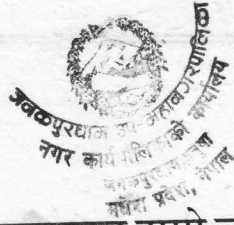 जनकपुरधाम उप-महानगरपालिका
नगर कार्यपालिकाको कार्यालय
मधेश प्रदेश, नेपाल